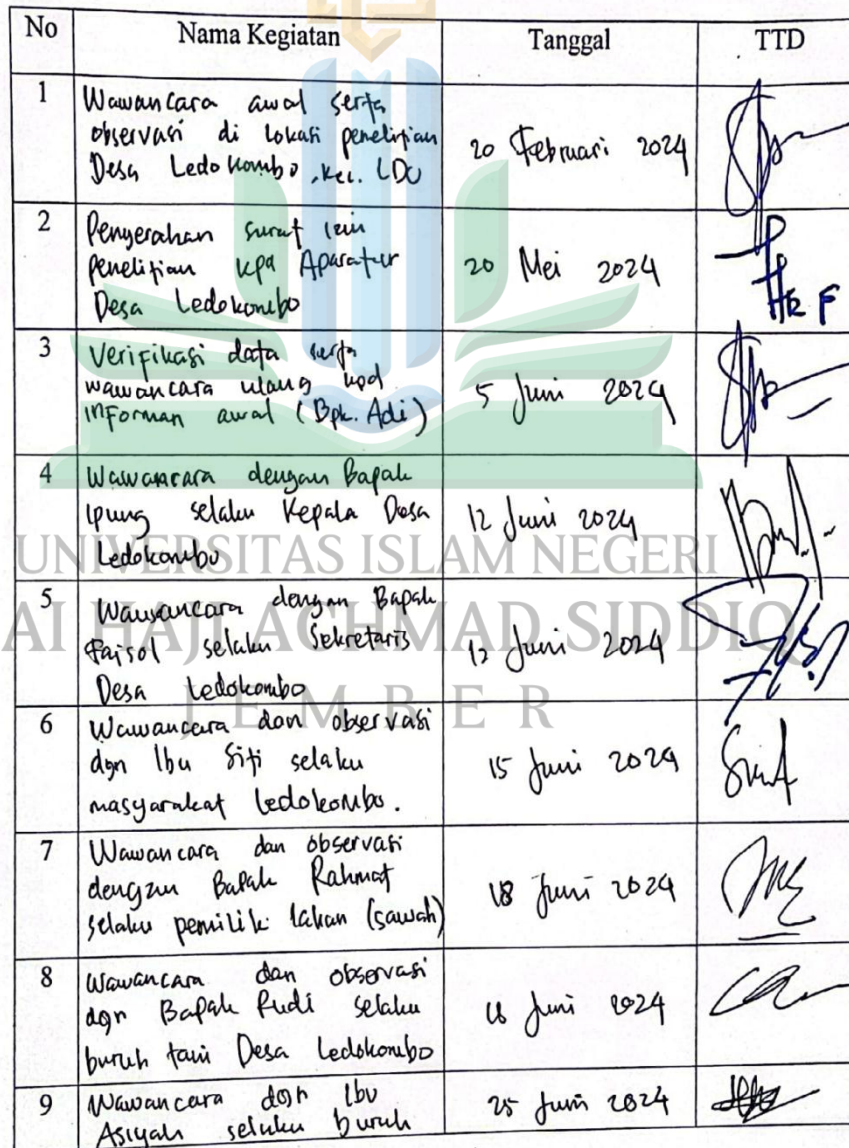 No Nama Kegiatan Tanggal TTD
1 Wawancara awal serta
observasi di lokasi penelitian
Desa Ledokombo, Kec. LDO
20 Februari 2024
2 Penyerahan surat izin
penelitian kpa Aparatur
Desa Ledokombo
20 Mei 2024
3 Verifikasi data serta
wawancara ulang kpd
informan awal (Bpk. Adi)
5 Juni 2024
4 Wawancara dengan Bapak
Ipung selaku Kepala Desa
Ledokombo
12 Juni 2024
UNIVERSITAS ISLAM NEGERI
5 Wawancara dengan Bapak
Faisol selaku Sekretaris
Desa Ledokombo
12 Juni 2024
AI HAJI ACHMAD SIDDIQ
JEMBER
6 Wawancara dan observasi
dgn Ibu Siti selaku
masyarakat Ledokombo.
15 Juni 2024
7 Wawancara dan observasi
dengan Bapak Rahmat
selaku pemilik lahan (sawah)
18 Juni 2024
8 Wawancara dan observasi
dgn Bapak Rudi selaku
buruh tani Desa Ledokombo
18 Juni 2024
9 Wawancara dgn Ibu
Asiyah selaku buruh
25 Juni 2024